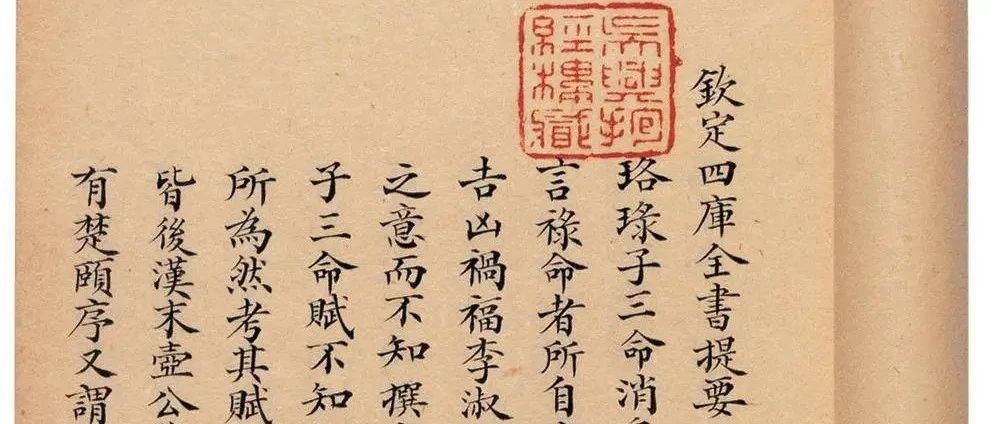 欽定四庫全書提要
吳興抱
經樓藏
珞琭子三命消
言祿命者所自
吉凶禍福李淑
之意而不知撰
子三命賦不知
所為然考其賦
皆後漢末壺公
有楚頤序又謂